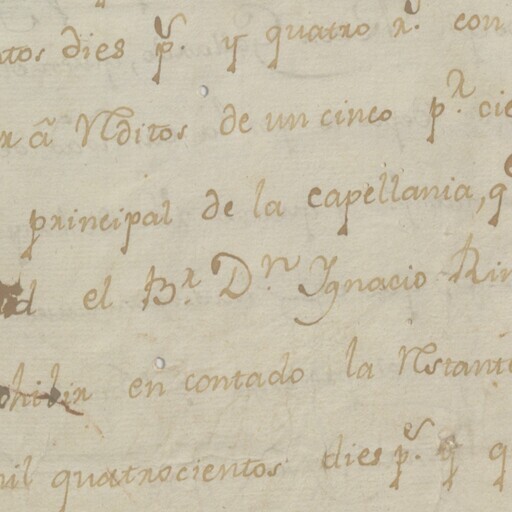 tos dies p.s y quatro r.s con
rã Rditos de un cinco p.r cie
principal de la capellania, q
el B.r D.n Ygnacio Rin
hibir en contado la Rstant
il quatrocientos dies p.s y q